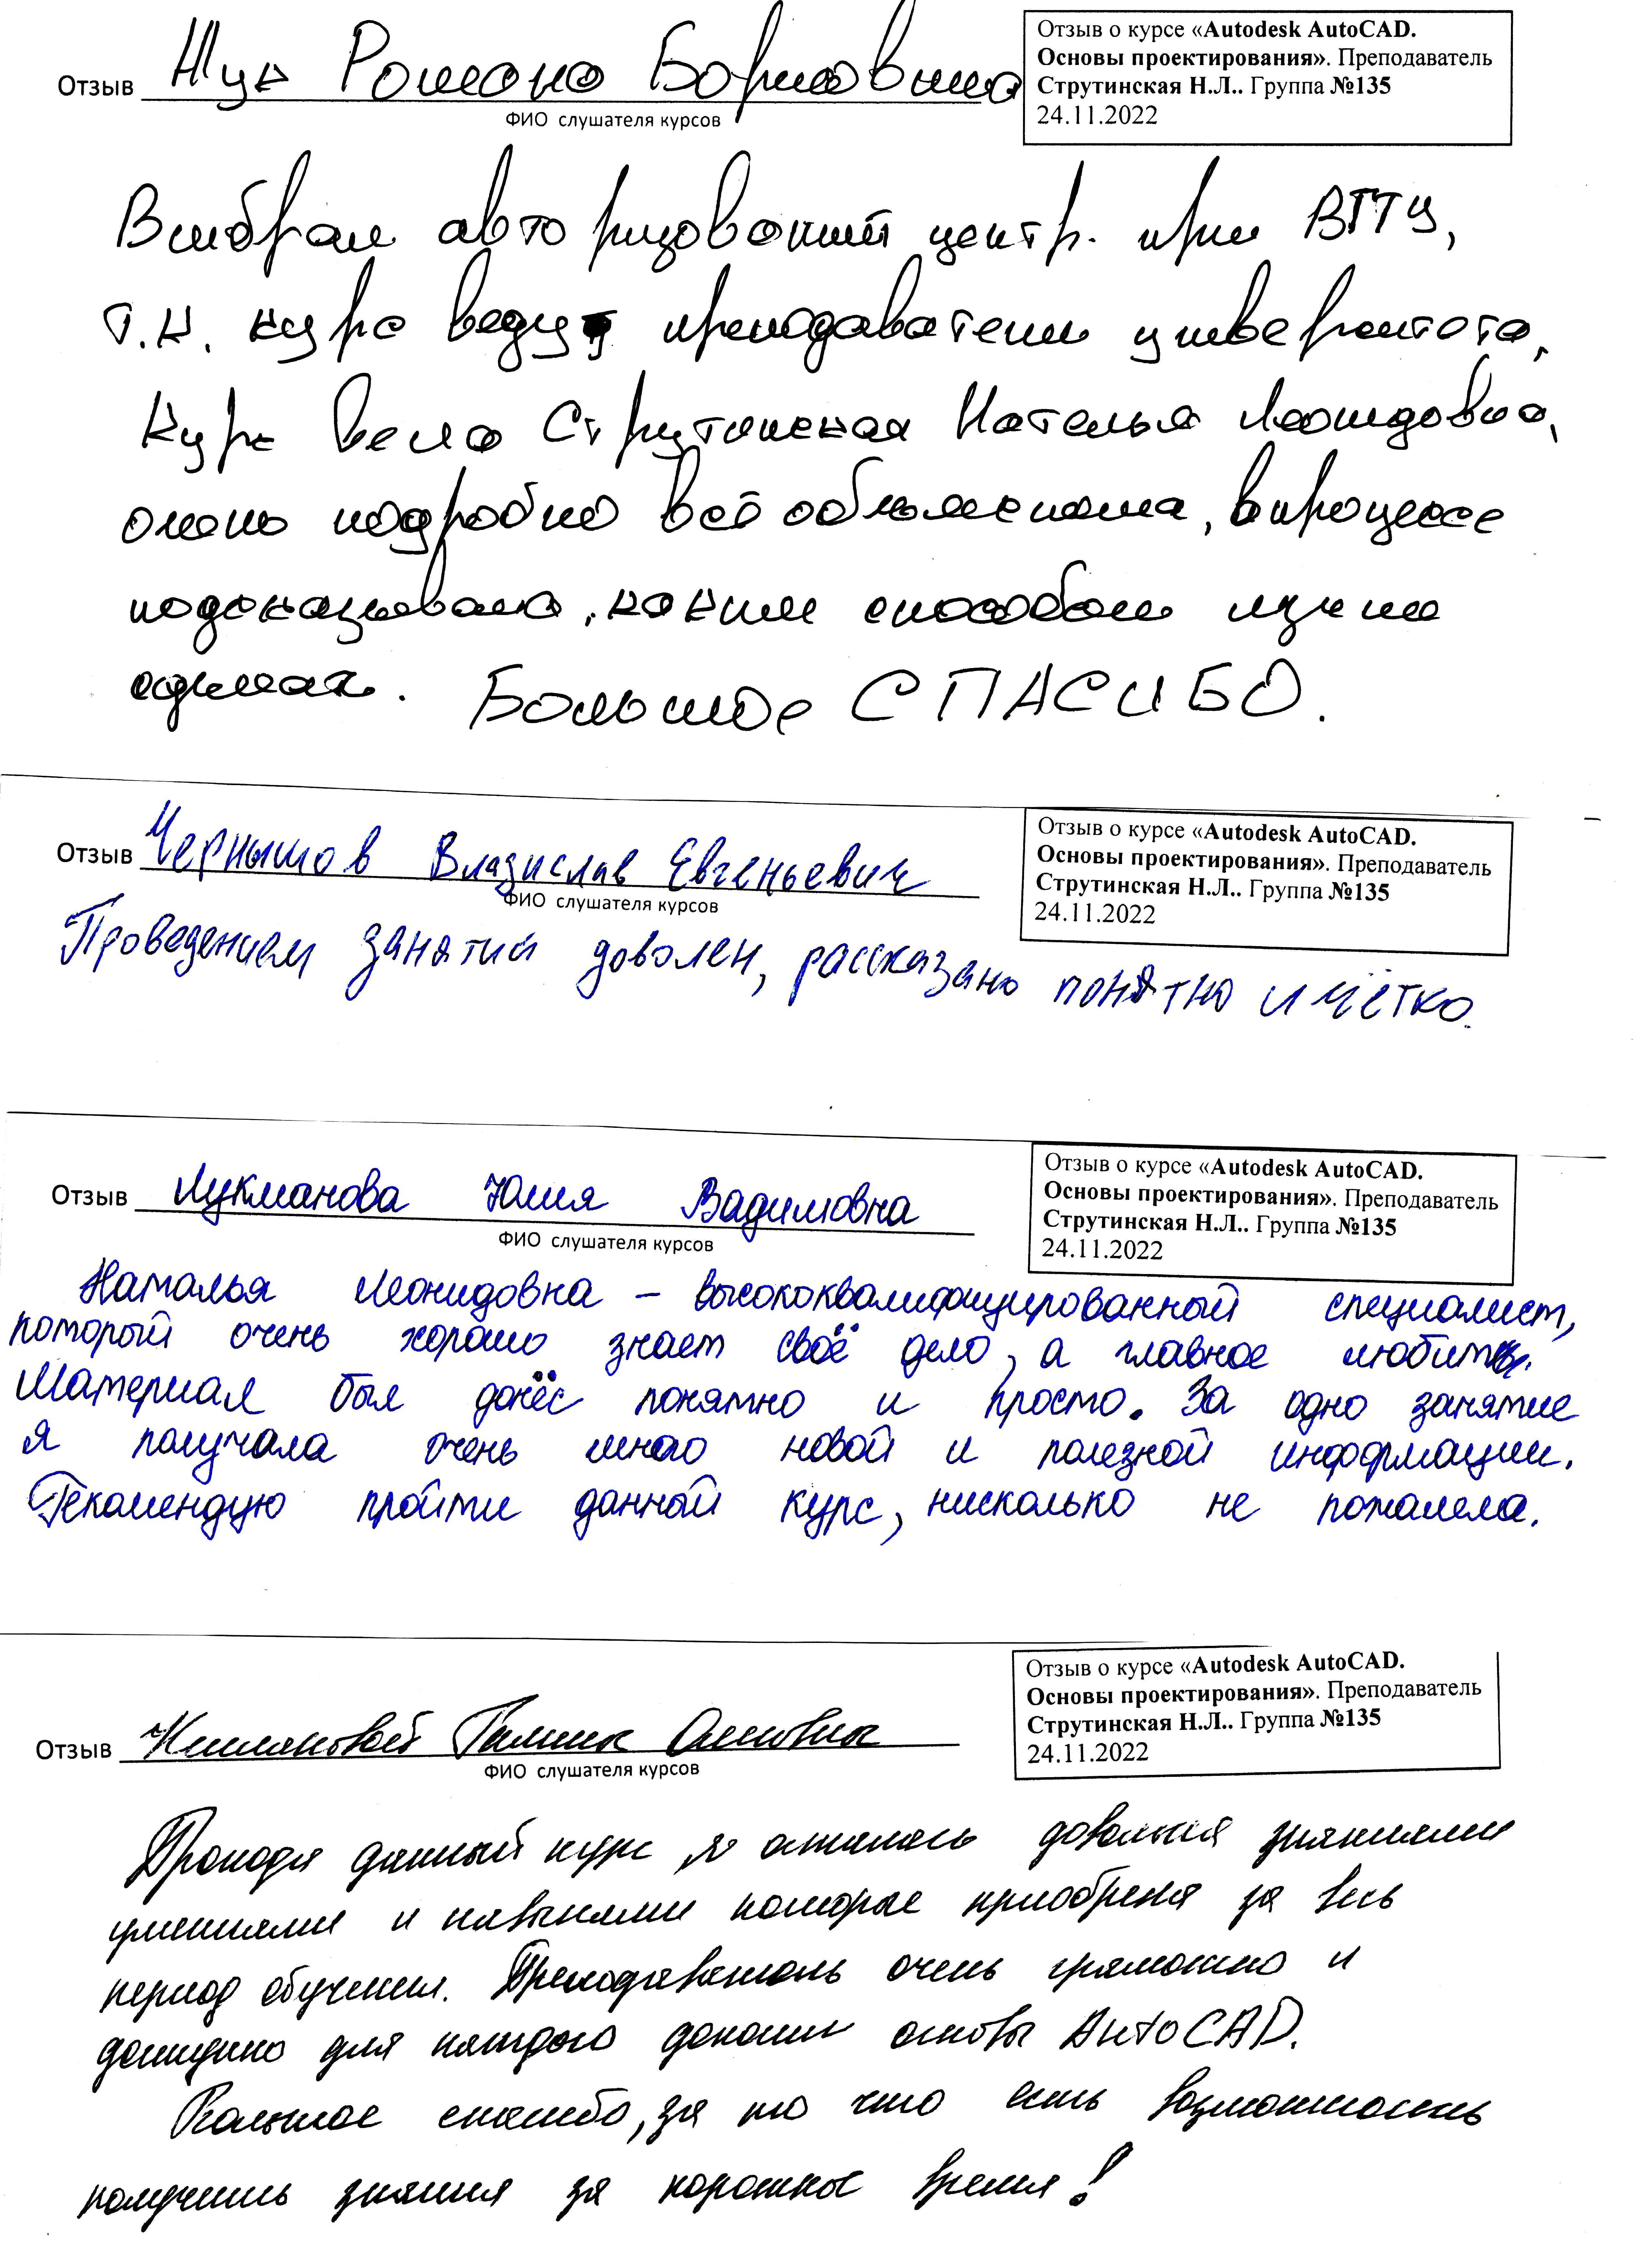 Отзыв Жук Романа Борисовича
ФИО слушателя курсов
Отзыв о курсе «Autodesk AutoCAD.
Основы проектирования». Преподаватель
Струтинская Н.Л.. Группа №135
24.11.2022
Выбрал авторизованый центр. при ВГТУ,
т.к. курс ведут преподаватели университета,
Курс вела Струтинская Наталья Леонидовна,
очень подробно всё объяснила, в процессе
подсказывала, каким способом лучше
сделать. Большое СПАСИБО.
Отзыв Чернышов Владислав Евгеньевич
ФИО слушателя курсов
Отзыв о курсе «Autodesk AutoCAD.
Основы проектирования». Преподаватель
Струтинская Н.Л.. Группа №135
24.11.2022
Проведением занятий доволен, рассказано понятно и чётко.
Отзыв Лукманова Юлия Вадимовна
ФИО слушателя курсов
Отзыв о курсе «Autodesk AutoCAD.
Основы проектирования». Преподаватель
Струтинская Н.Л.. Группа №135
24.11.2022
Наталья Леонидовна – высококвалифицированный специалист,
который очень хорошо знает своё дело, а главное любит.
Материал был донёс понятно и просто. За одно занятие
я получала очень много новой и полезной информации.
Рекомендую пройти данный курс, нисколько не пожалела.
Отзыв Галины
ФИО слушателя курсов
Отзыв о курсе «Autodesk AutoCAD.
Основы проектирования». Преподаватель
Струтинская Н.Л.. Группа №135
24.11.2022
Проходя данный курс я осталась довольна знаниями
умениями и навыками которые приобрела за весь
период обучения. Преподаватель очень грамотно и
доступно для каждого доносит основы AutoCAD.
Большое спасибо, за то что есть возможность
получить знания за короткое время!